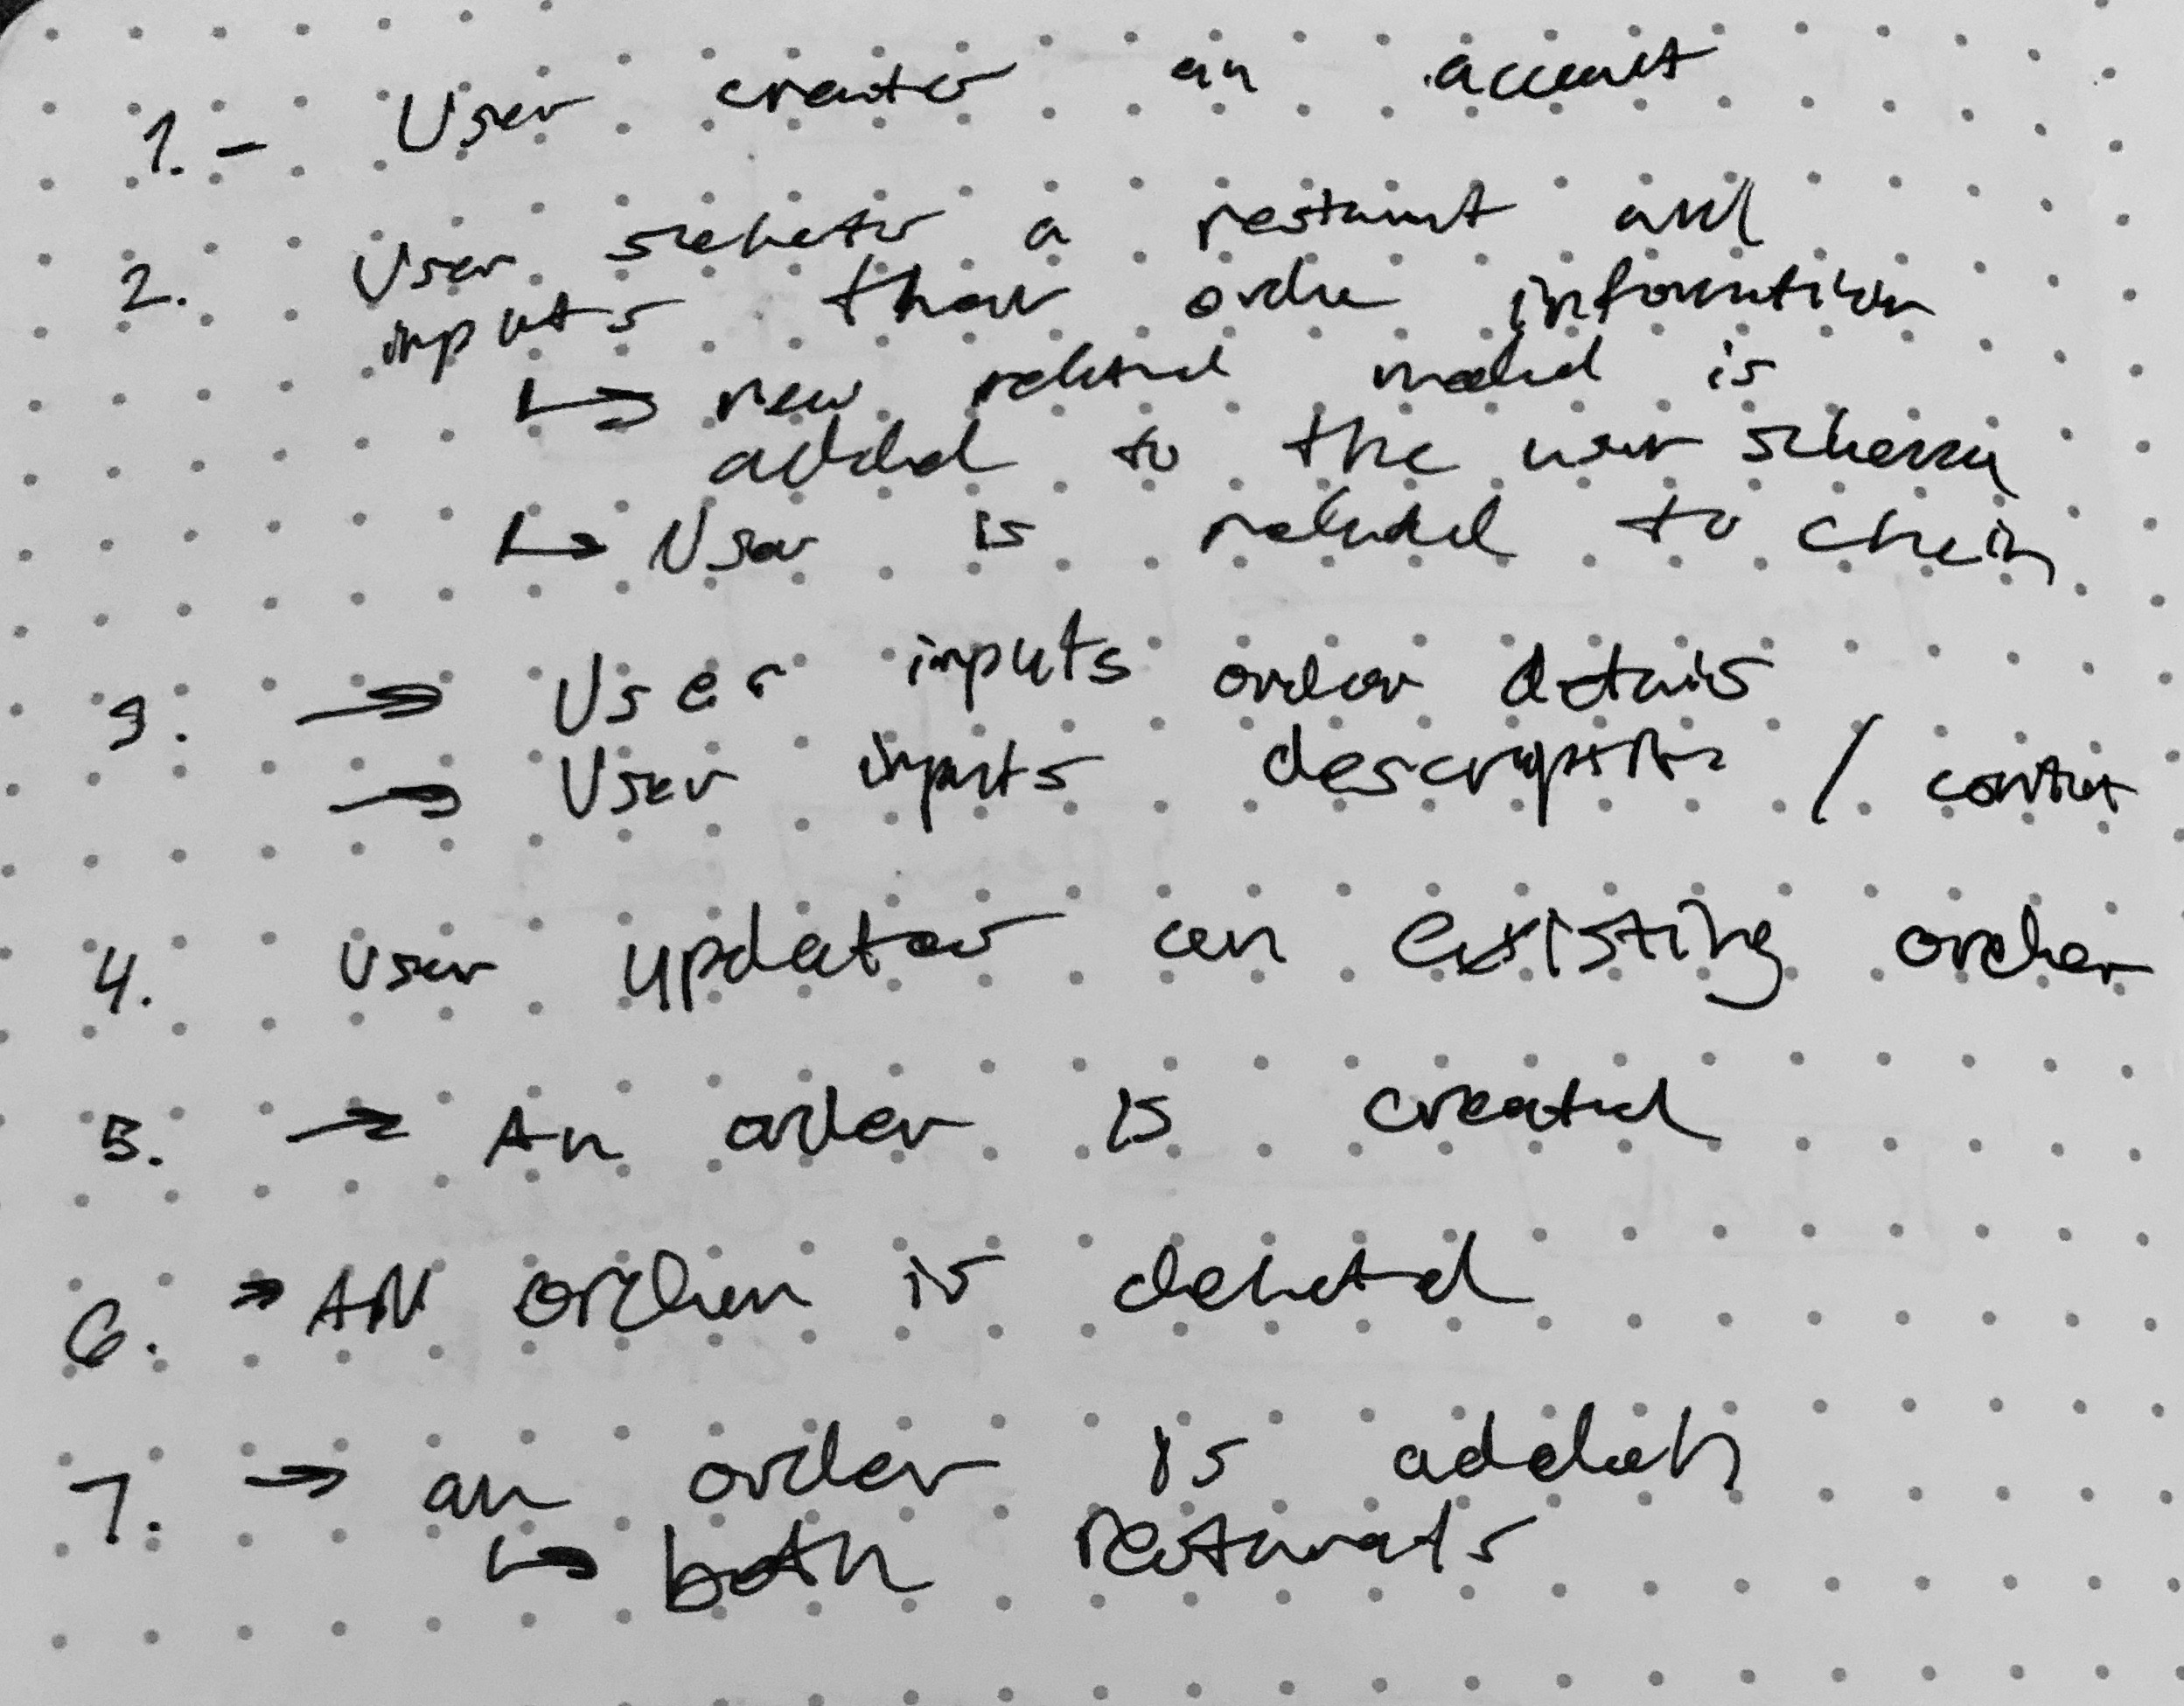 1. - User creates an account
2. User selects a restaurant and
inputs their order information
↳ new related model is
added to the user schema
↳ User is related to chain
3. → User inputs order details
→ User inputs description / context
4. User updates an existing order
5. → An order is created
6. → AN order is deleted
7. → an order is added
↳ both restaurants